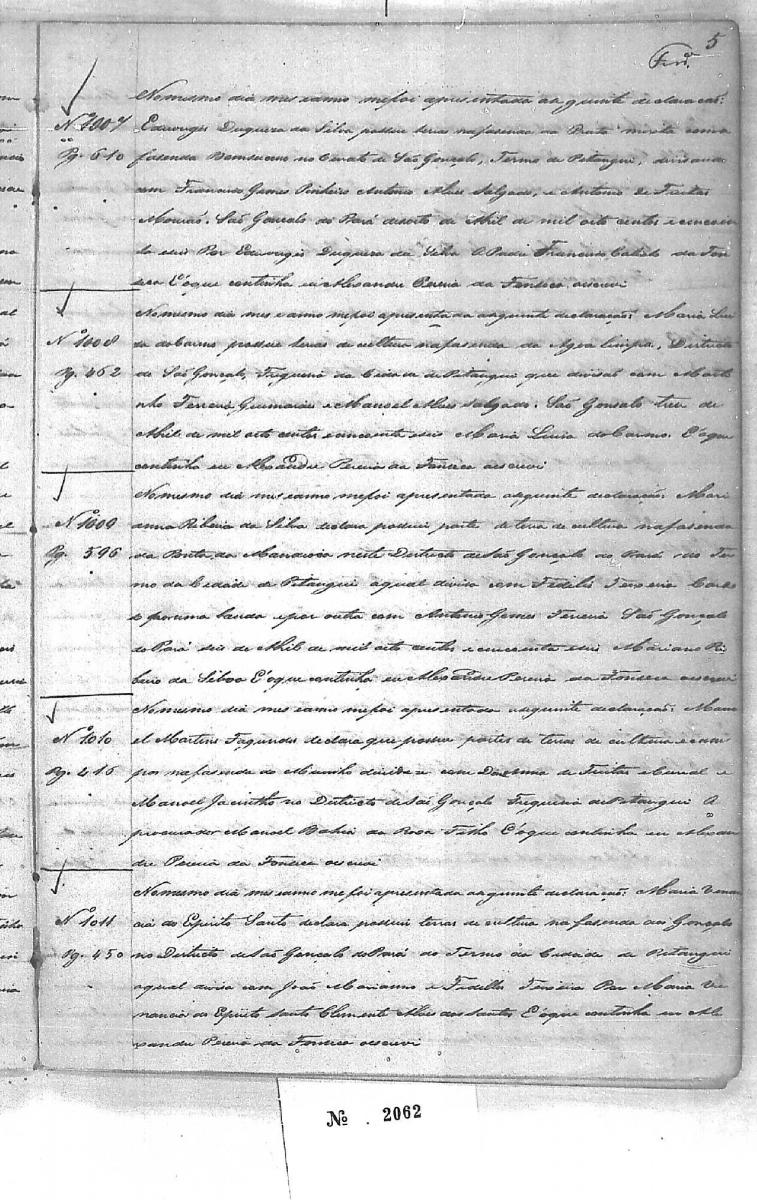 5
No mesmo dia mes e anno me foi apresentada a seguinte declaração:
Nº 1007 Eduvirges Duquera da Silva possue terras na fasenda da Ponte mista com a
Pg. 610 fasenda Bomsucesso no Curato de São Gonçalo, Termo de Pitangui, divisando
com Francisco Gomes Pinheiro Antonio Alves Salgado, e Antonio de Freitas
Mourão. São Gonçalo do Pará desoito de Abril de mil oito centos e cincoen
ta seis Por Eduvirges Duquera da Silva O Padre Francisco da Fon
seca E o que continha eu Alexandre Pereira da Fonseca o escrevi
No mesmo dia mes e anno me foi apresentada a seguinte declaração: Maria Lui
Nº 1008 sa do Carmo possue terras de cultura na fasenda da Agoa limpa, Districto
Pg. 462 de São Gonçalo, Freguesia da Cidade de Pitangui que divisa com Marti
nho Ferreira Guimarães e Manoel Alves Salgado. São Gonsalo tres de
Abril de mil oito centos e cincoenta e seis Maria Luisa do Carmo. E o que
continha eu Alexandre Pereira da Fonseca o escrevi
No mesmo dia mes e anno me foi apresentada a seguinte declaração: Mari
Nº 1009 anna Ribeira da Silva declara possuir parte de terra de cultura na fasenda
Pg. 596 da Ponte da neste Districto de São Gonçalo do Pará do Ter
mo da Cidade de Pitangui a qual divisa com Fidelis Teixeira
por uma banda e por outra com Antonio Gomes Ferreira São Gonçalo
do Pará seis de Abril de mil oito centos e cincoenta e seis Mariano Ri
beiro da Silva E o que continha eu Alexandre Pereira da Fonseca o escrevi
No mesmo dia mes e anno me foi apresentada a seguinte declaração: Mano
Nº 1010 el Martins Fagundes declara que possue partes de terras de cultura e cam
Pg. 416 pos na fasenda do Moinho divide se com de Freitas e
Manoel Jacintho no Districto de São Gonçalo Freguesia de Pitangui O
procurador Manoel Bahia da Rosa Filho E o que continha eu Alexan
dre Pereira da Fonseca o escrevi
No mesmo dia mes e anno me foi apresentada a seguinte declaração: Maria Venan
Nº 1011 cia do Espirito Santo declara possuir terras de cultura na fasenda do Gonçalo
Pg. 450 no Districto de São Gonçalo do Pará do Termo da Cidade de Pitangui
a qual divisa com João Marianno e Fidelles Teixeira Por Maria Ve
nancia do Espirito Santo Clemente Alves dos Santos E o que continha eu Ale
xandre Pereira da Fonseca o escrevi
Nº. 2062